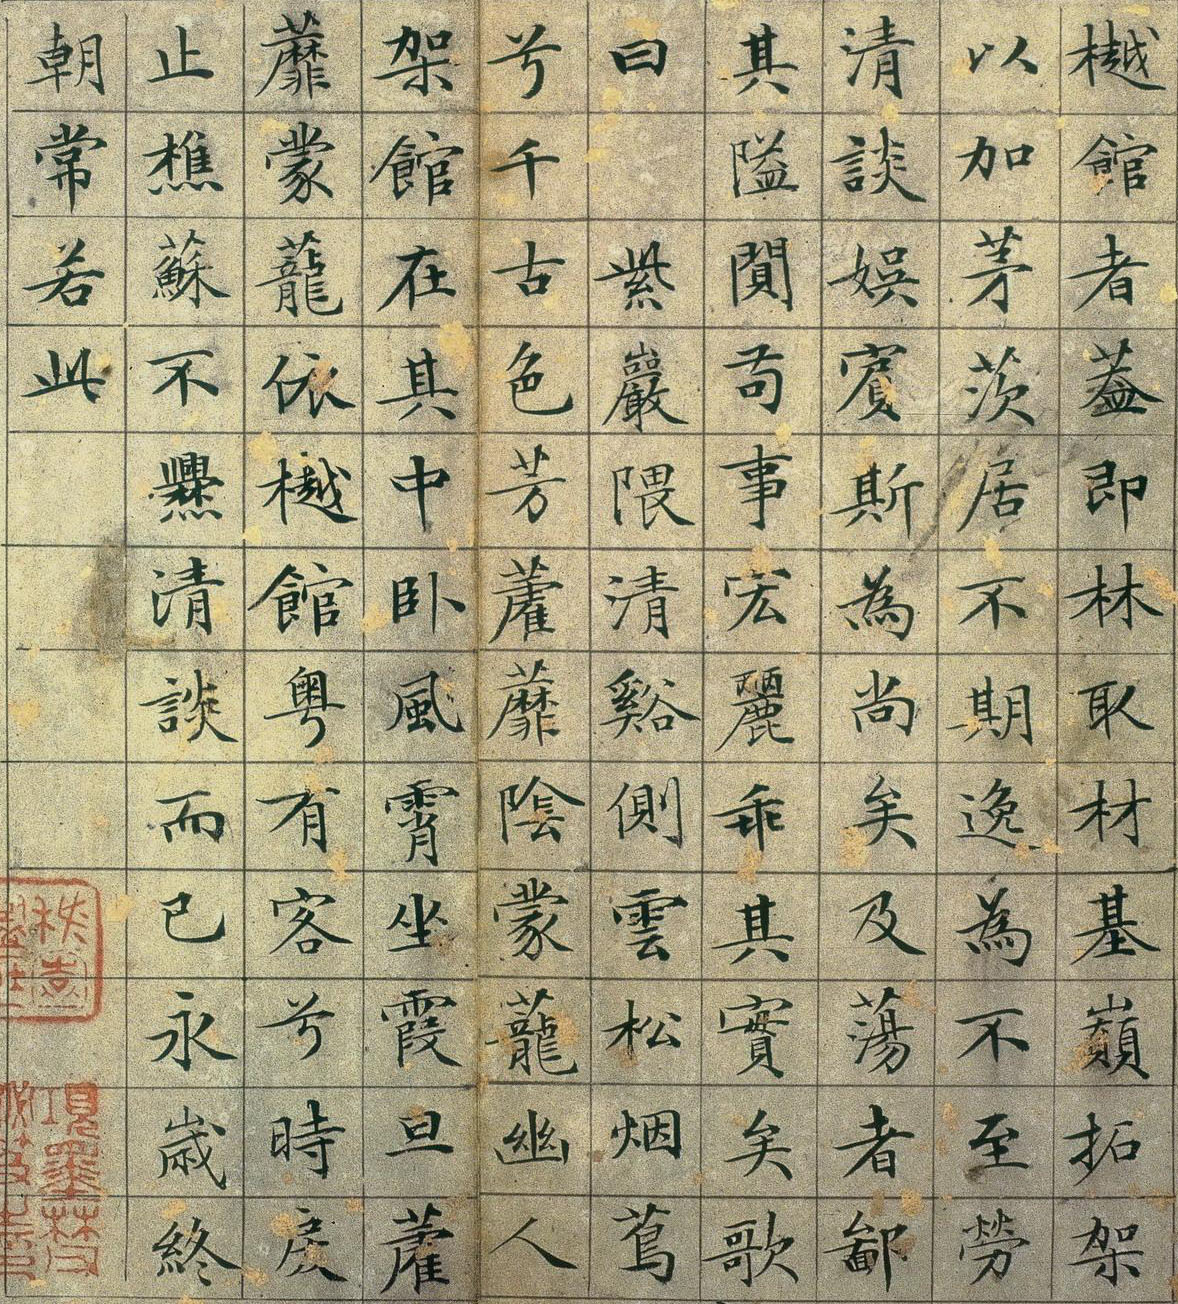 樾館者蓋即林取材基巔拓架
以加茅茨居不期逸為不至勞
清談娛賓斯為尚矣及蕩者鄙
其隘閴苟事宏麗乖其實矣歌
曰 紫巖隈清谿側雲松烟蔦
兮千古色芳藿蘼陰蒙蘢幽人
架館在其中臥風霄坐霞旦藿
蘼蒙蘢依樾館粵有客兮時戾
止樵蘇不爨清談而已永歲終
朝常若此
項墨林